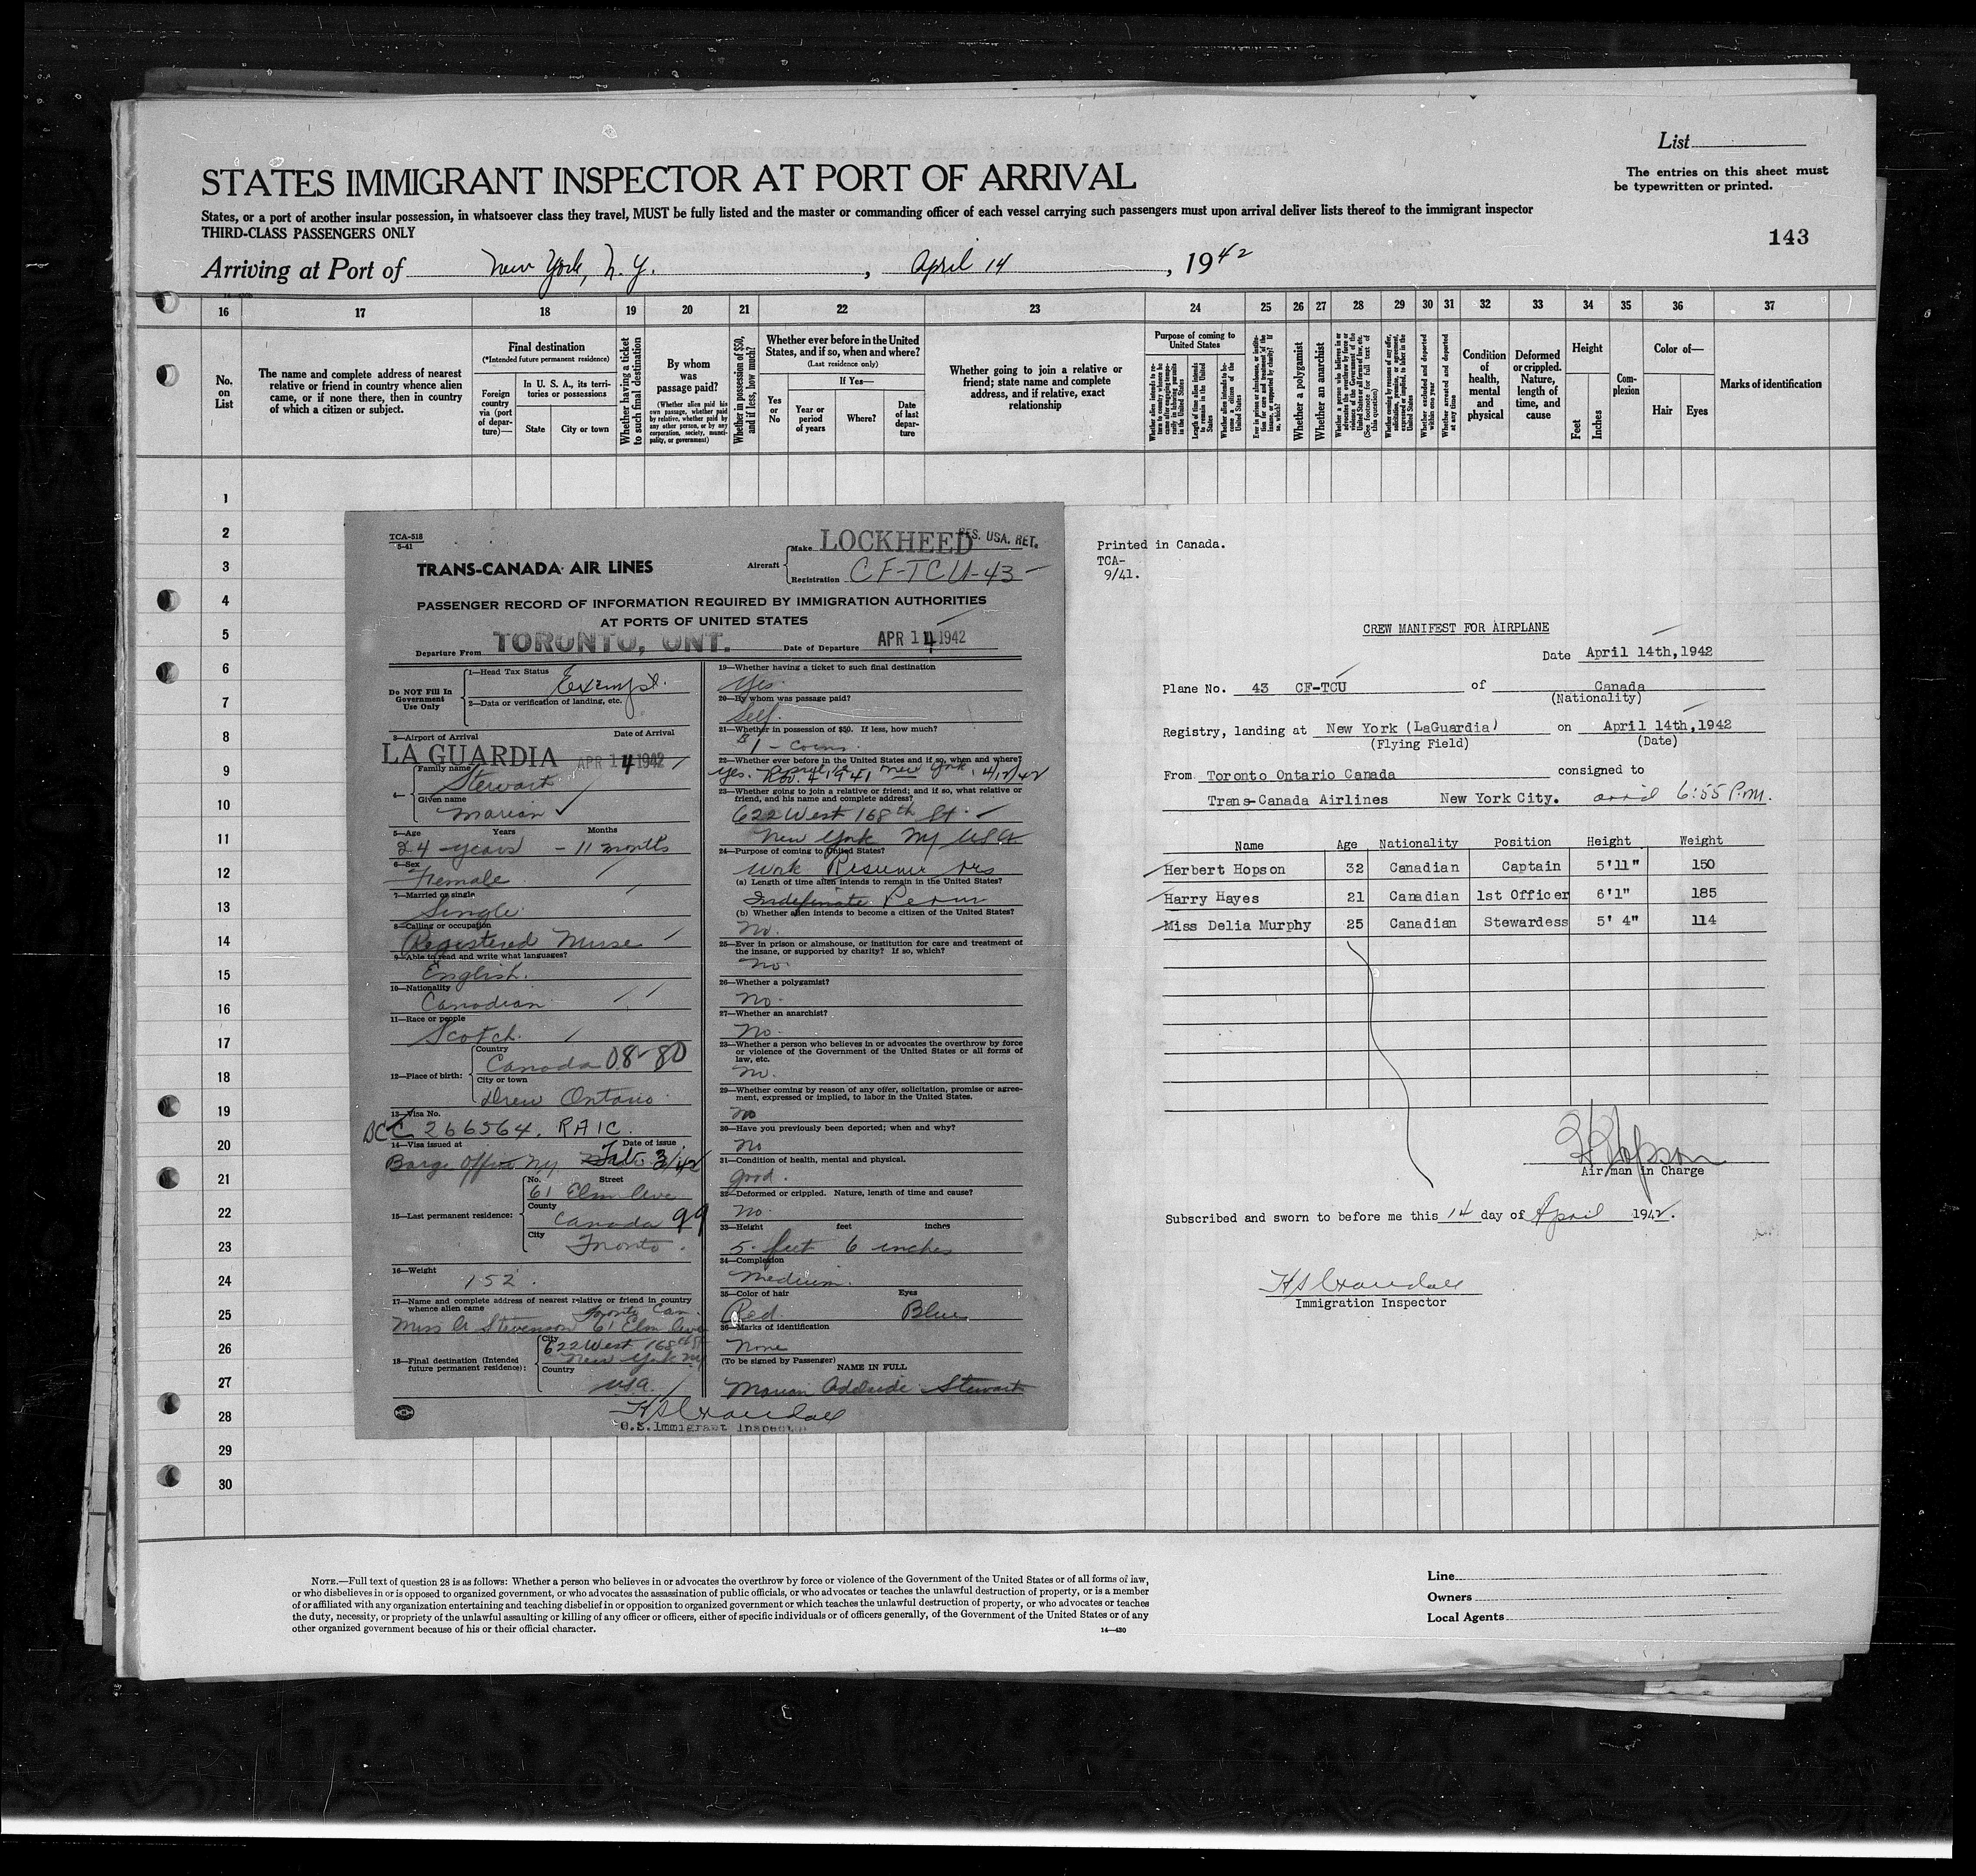 List
STATES IMMIGRANT INSPECTOR AT PORT OF ARRIVAL
The entries on this sheet must
be typewritten or printed.
States, or a port of another insular possession, in whatsoever class they travel, MUST be fully listed and the master or commanding officer of each vessel carrying such passengers must upon arrival deliver lists thereof to the immigrant inspector
THIRD-CLASS PASSENGERS ONLY
143
Arriving at Port of New York, N.Y., April 14, 1942
16 17 18 19 20 21 22 23 24 25 26 27 28 29 30 31 32 33 34 35 36 37
No. on List
The name and complete address of nearest
relative or friend in country whence alien
came, or if none there, then in country
of which a citizen or subject.
Final destination
(*Intended future permanent residence)
Foreign country via (port of departure)—
In U. S. A., its territories or possessions
State
City or town
Whether having a ticket to such final destination
By whom was passage paid?
(Whether alien paid his own passage, whether paid by relative, whether paid by any other person, or by any corporation, society, municipality, or government)
Whether in possession of $50, and if less, how much?
Whether ever before in the United
States, and if so, when and where?
(Last residence only)
Yes or No
If Yes—
Year or period of years
Where?
Date of last departure
Whether going to join a relative or
friend; state name and complete
address, and if relative, exact
relationship
Purpose of coming to
United States
Length of time alien intends to remain in the United States
Whether alien intends to become a citizen of the United States
Whether a polygamist
Whether an anarchist
Whether excluded and deported within one year
Whether arrested and deported at any time
Condition of health, mental and physical
Deformed or crippled. Nature, length of time, and cause
Height
Feet
Inches
Complexion
Color of—
Hair
Eyes
Marks of identification
1
2
3
4
5
6
7
8
9
10
11
12
13
14
15
16
17
18
19
20
21
22
23
24
25
26
27
28
29
30
TCA-518
5-41
TRANS-CANADA AIR LINES
Aircraft
Make LOCKHEED
RES. USA. RET.
Registration CF-TCU-43
PASSENGER RECORD OF INFORMATION REQUIRED BY IMMIGRATION AUTHORITIES
AT PORTS OF UNITED STATES
Departure From TORONTO, ONT. Date of Departure APR 14 1942
Do NOT Fill In
Government
Use Only
1—Head Tax Status Exempt.
2—Data or verification of landing, etc.
3—Airport of Arrival Date of Arrival
LA GUARDIA APR 14 1942
4—
Family name
Stewart
Given name
Marian
5—Age Years Months
24 years - 11 months
6—Sex
Female
7—Married or single
Single
8—Calling or occupation
Registered Nurse
9—Able to read and write what languages?
English.
10—Nationality
Canadian
11—Race or people
Scotch.
12—Place of birth:
Country
Canada 08-80
City or town
Drew Ontario
13—Visa No.
BCC 266564. RAIC.
14—Visa issued at Date of issue
Barge Office NY. Feb 3/42
15—Last permanent residence:
No. Street
61 Elm Ave
County
Canada 99
City
Toronto.
16—Weight
152.
17—Name and complete address of nearest relative or friend in country
whence alien came
Toronto Can.
Miss A Stevenson 61 Elm Ave
18—Final destination (Intended
future permanent residence):
City
622 West 168th St
New York NY
Country
USA.
19—Whether having a ticket to such final destination
Yes.
20—By whom was passage paid?
Self.
21—Whether in possession of $50. If less, how much?
$1 - Coins.
22—Whether ever before in the United States and if so, when and where?
Yes. New York. 4/12/42
Nov. 4 1941
23—Whether going to join a relative or friend; and if so, what relative or
friend, and his name and complete address?
622 West 168th St.
New York NY USA
24—Purpose of coming to United States?
Work Resume Res
(a) Length of time alien intends to remain in the United States?
Indefinate Perm
(b) Whether alien intends to become a citizen of the United States?
No.
25—Ever in prison or almshouse, or institution for care and treatment of
the insane, or supported by charity? If so, which?
No.
26—Whether a polygamist?
No.
27—Whether an anarchist?
No.
28—Whether a person who believes in or advocates the overthrow by force
or violence of the Government of the United States or all forms of
law, etc.
No.
29—Whether coming by reason of any offer, solicitation, promise or agree-
ment, expressed or implied, to labor in the United States.
No
30—Have you previously been deported; when and why?
No
31—Condition of health, mental and physical.
Good.
32—Deformed or crippled. Nature, length of time and cause?
No.
33—Height feet inches
5 feet 6 inches
34—Complexion
Medium.
35—Color of hair Eyes
Red. Blue
36—Marks of identification
None
(To be signed by Passenger)
NAME IN FULL
Marian Adelaide Stewart
H S Crandall
U.S. Immigrant Inspector
Printed in Canada.
TCA-
9/41.
CREW MANIFEST FOR AIRPLANE
Date April 14th, 1942
Plane No. 43 CF-TCU of Canada
(Nationality)
Registry, landing at New York (LaGuardia) on April 14th, 1942
(Flying Field) (Date)
From Toronto Ontario Canada consigned to
Trans-Canada Airlines New York City. 6:55 P.M.
Name Age Nationality Position Height Weight
Herbert Hopson 32 Canadian Captain 5'11" 150
Harry Hayes 21 Canadian 1st Officer 6'1" 185
Miss Delia Murphy 25 Canadian Stewardess 5' 4" 114
H Hopson
Air/man in Charge
Subscribed and sworn to before me this 14 day of April 1942.
H S Crandall
Immigration Inspector
NOTE.—Full text of question 28 is as follows: Whether a person who believes in or advocates the overthrow by force or violence of the Government of the United States or of all forms of law,
or who disbelieves in or is opposed to organized government, or who advocates the assassination of public officials, or who advocates or teaches the unlawful destruction of property, or is a member
of or affiliated with any organization entertaining and teaching disbelief in or opposition to organized government or which teaches the unlawful destruction of property, or who advocates or teaches
the duty, necessity, or propriety of the unlawful assaulting or killing of any officer or officers, either of specific individuals or of officers generally, of the Government of the United States or of any
other organized government because of his or their official character.
14—430
Line
Owners
Local Agents